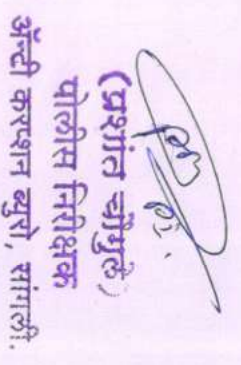 (प्रशांत चौगुले)
पोलीस निरीक्षक
अँन्टी करप्शन ब्युरो, सांगली.